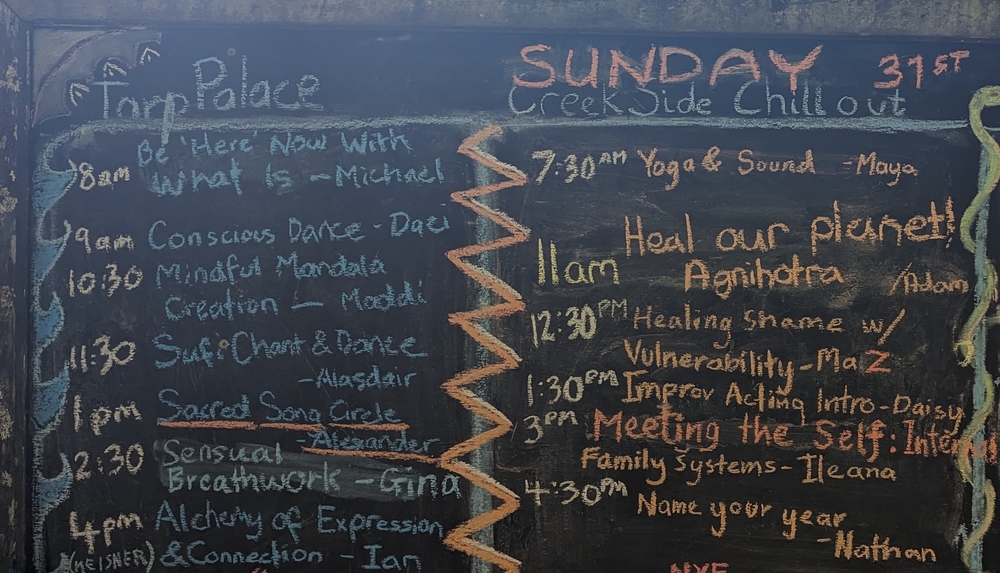 SUNDAY 31ST
Tarp Palace
8am Be 'Here' Now With
What Is - Michael
9am Conscious Dance - Daci
10:30 Mindful Mandala
Creation - Maddi
11:30 Sufi Chant & Dance
- Alasdair
1pm Sacred Song Circle
- Alexander
2:30 Sensual
Breathwork - Gina
4pm Alchemy of Expression
(MEISNER) & Connection - Ian
CreekSide Chillout
7:30AM Yoga & Sound - Maya
11am Heal our planet!
Agnihotra /Adam
12:30PM Healing shame w/
Vulnerability - MaZ
1:30PM Improv Acting Intro - Daisy
3PM Meeting the Self: Internal
Family Systems - Ileana
4:30PM Name your year
- Nathan
NYE